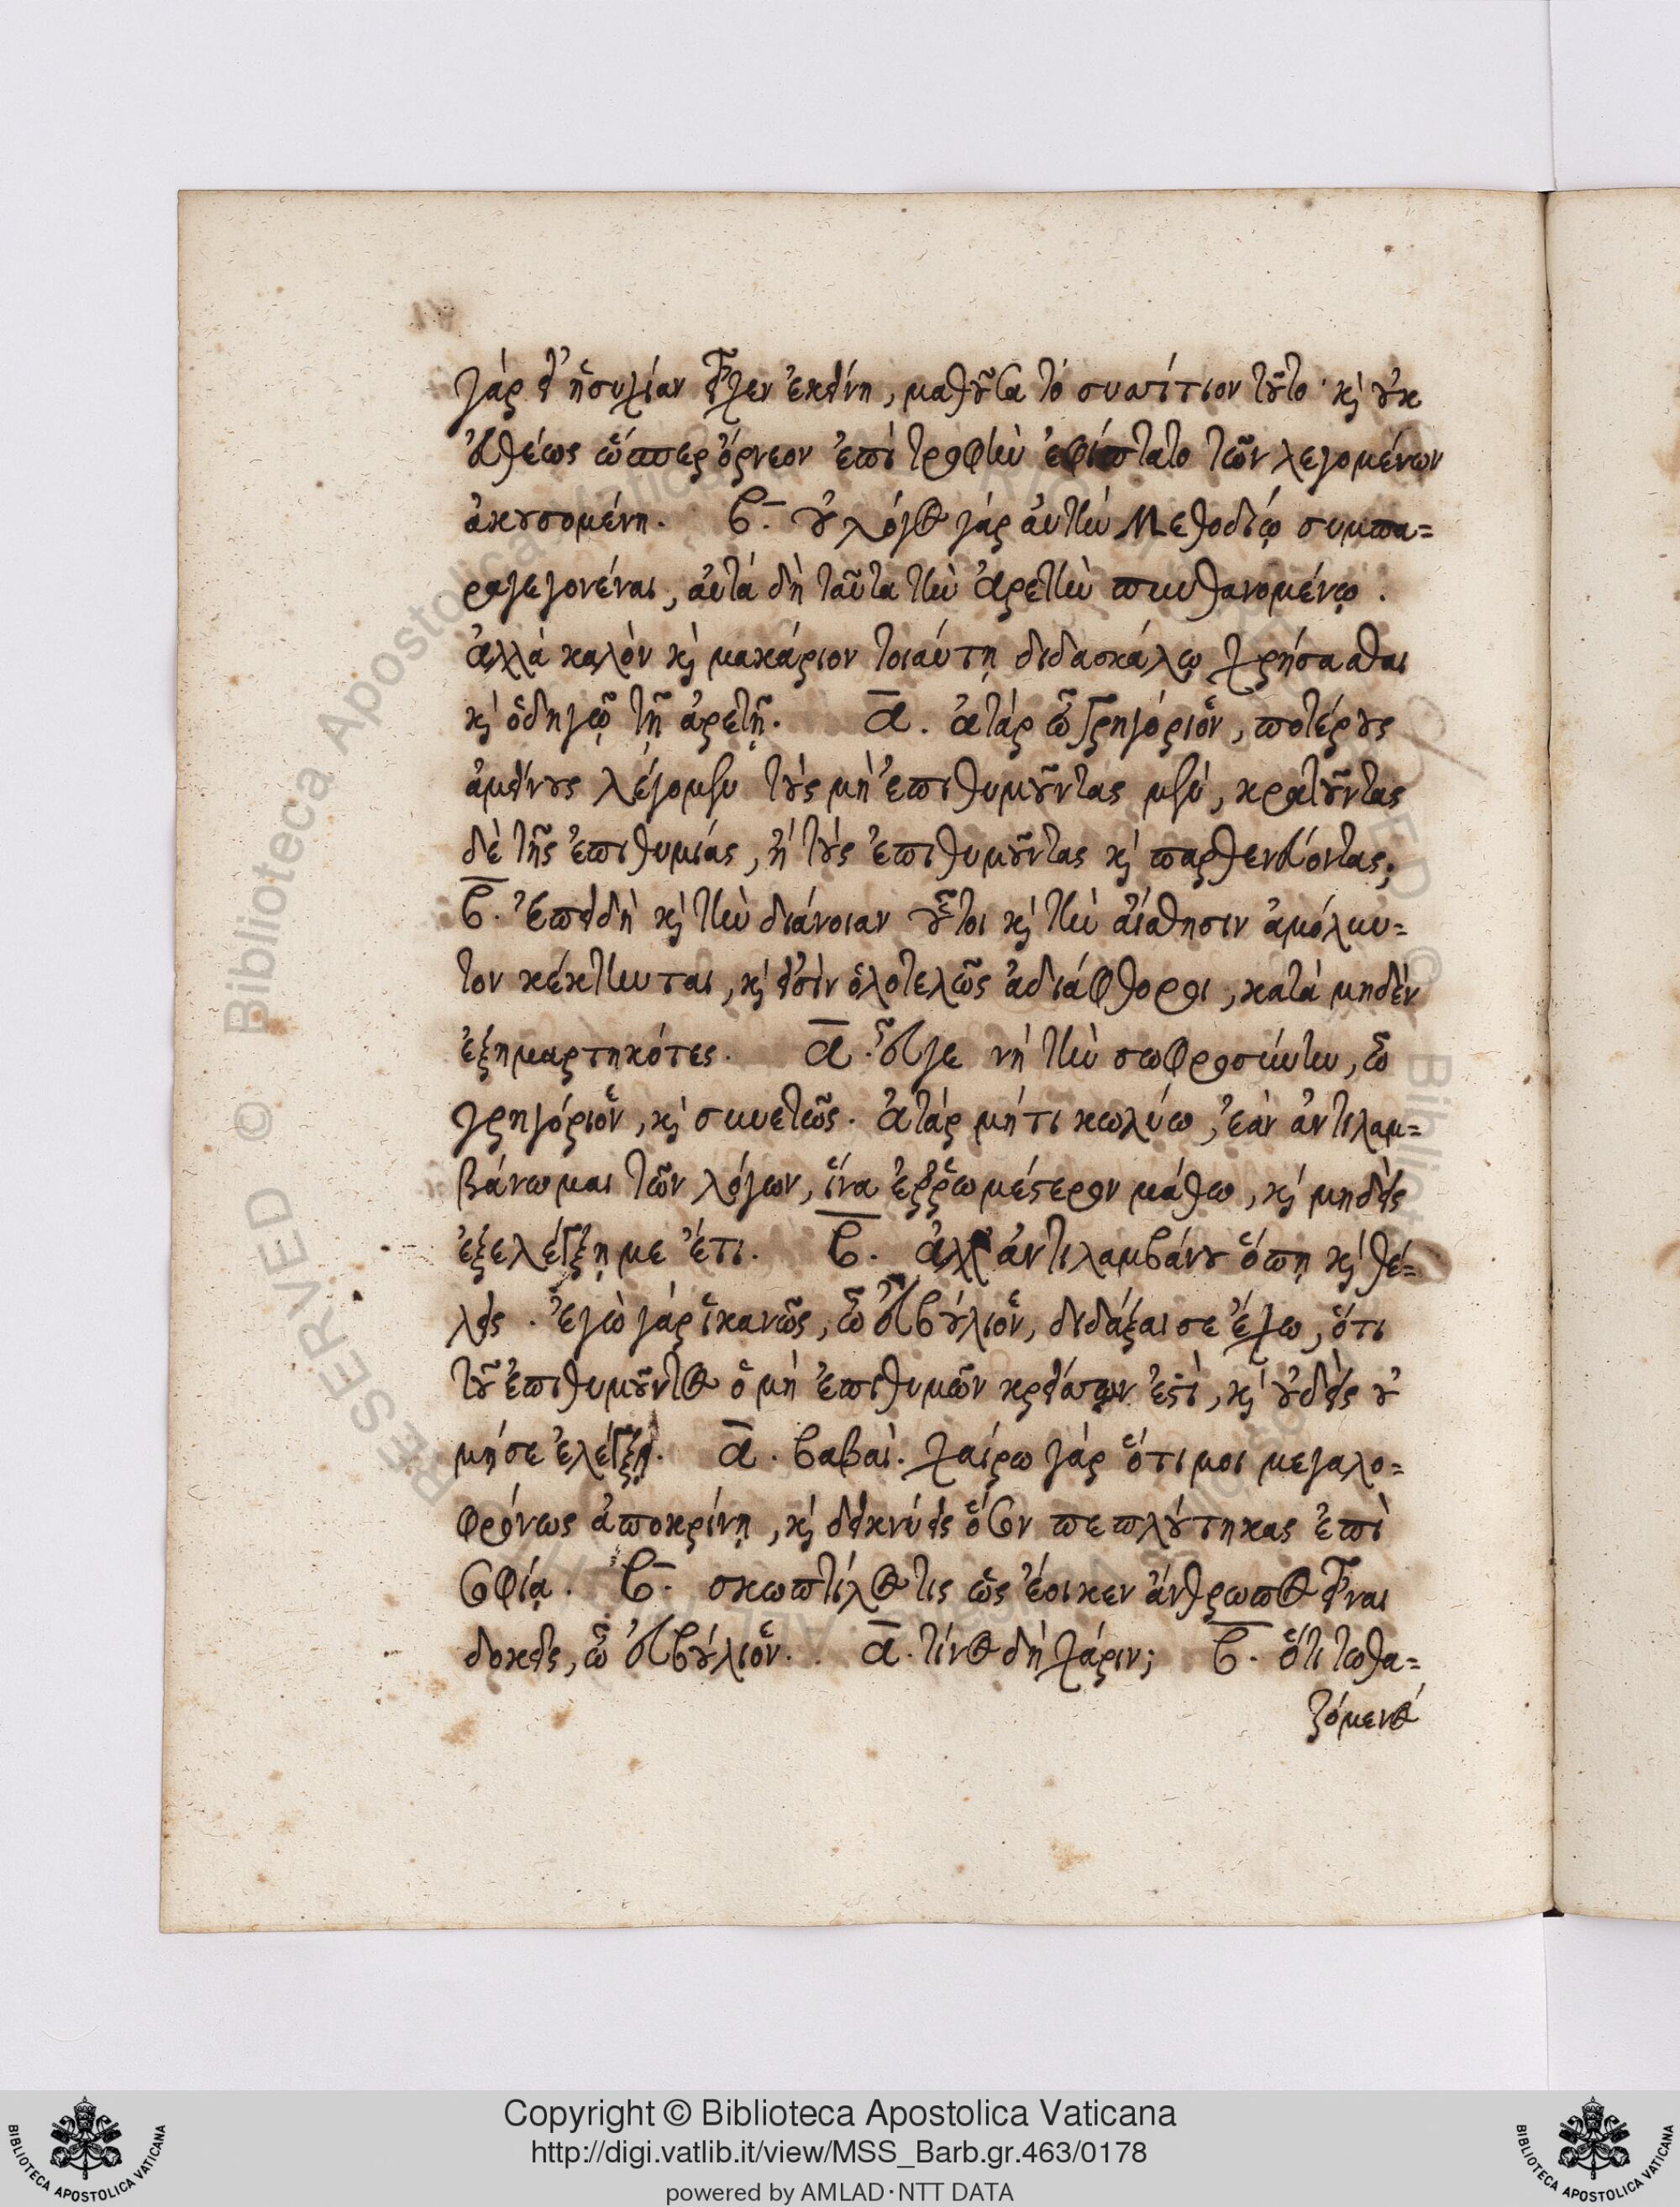 γάρ εἰ ἡσυχίαν εἶχεν ἐκείνη, μαθοῦσα τὸ συσσίτιον τοῦτο· καὶ οὐκ
εὐθέως ὥσπερ ὄρνεον ἐπὶ τροφὴν ἐφίπτατο τῶν λεγομένων
ἀκουσομένη. β. ὁ λόγος γὰρ αὐτὴν Μεθοδίῳ συμπα=
ραγεγονέναι, αὐτὰ δὴ ταῦτα τὴν ἀρετὴν πυνθανομένῳ.
ἀλλὰ καλὸν καὶ μακάριον τοιαύτῃ διδασκάλῳ χρήσασθαι
καὶ ὁδηγῷ τῇ ἀρετῇ. α. ἀτὰρ ὦ Γρηγόριον, ποτέρους
ἀμείνους λέγομεν τοὺς μὴ ἐπιθυμοῦντας μὲν, κρατοῦντας
δὲ τῆς ἐπιθυμίας, ἢ τοὺς ἐπιθυμοῦντας καὶ παρθενεύοντας;
β. ἐπειδὴ καὶ τὴν διάνοιαν οὗτοι καὶ τὴν αἴσθησιν ἀμόλυν=
τον κέκτηνται, καὶ εἰσὶν ὁλοτελῶς ἀδιάφθοροι, κατὰ μηδὲν
ἐξημαρτηκότες. α. εὖγε νὴ τὴν σωφροσύνην, ὦ
Γρηγόριον, καὶ συνετῶς. ἀτὰρ μή τι κωλύω, ἐὰν ἀντιλαμ=
βάνωμαι τῶν λόγων, ἵνα ἐῤῥωμέστερον μάθω, καὶ μηδεὶς
ἐξελέγξῃ με ἔτι. β. ἀλλ' ἀντιλαμβάνου ὅπῃ καὶ θέ=
λεις. ἐγὼ γὰρ ἱκανῶς, ὦ Εὐβούλιον, διδάξαι σε ἔχω, ὅτι
τοῦ ἐπιθυμοῦντος ὁ μὴ ἐπιθυμῶν κρείσσων ἐστὶ, καὶ οὐδεὶς οὐ
μή σε ἐλέγξῃ. α. βαβαί. χαίρω γὰρ ὅτι μοι μεγαλο=
φρόνως ἀποκρίνῃ, καὶ δεικνύεις ὅσον πεπλούτηκας ἐπὶ
σοφίᾳ. β. σκωπτίλος τις ὡς ἔοικεν ἄνθρωπος εἶναι
δοκεῖς, ὦ Εὐβούλιον. α. τίνος δὴ χάριν; β. ὅτι τωθα=
ζόμενος
Copyright © Biblioteca Apostolica Vaticana
http://digi.vatlib.it/view/MSS_Barb.gr.463/0178
powered by AMLAD·NTT DATA